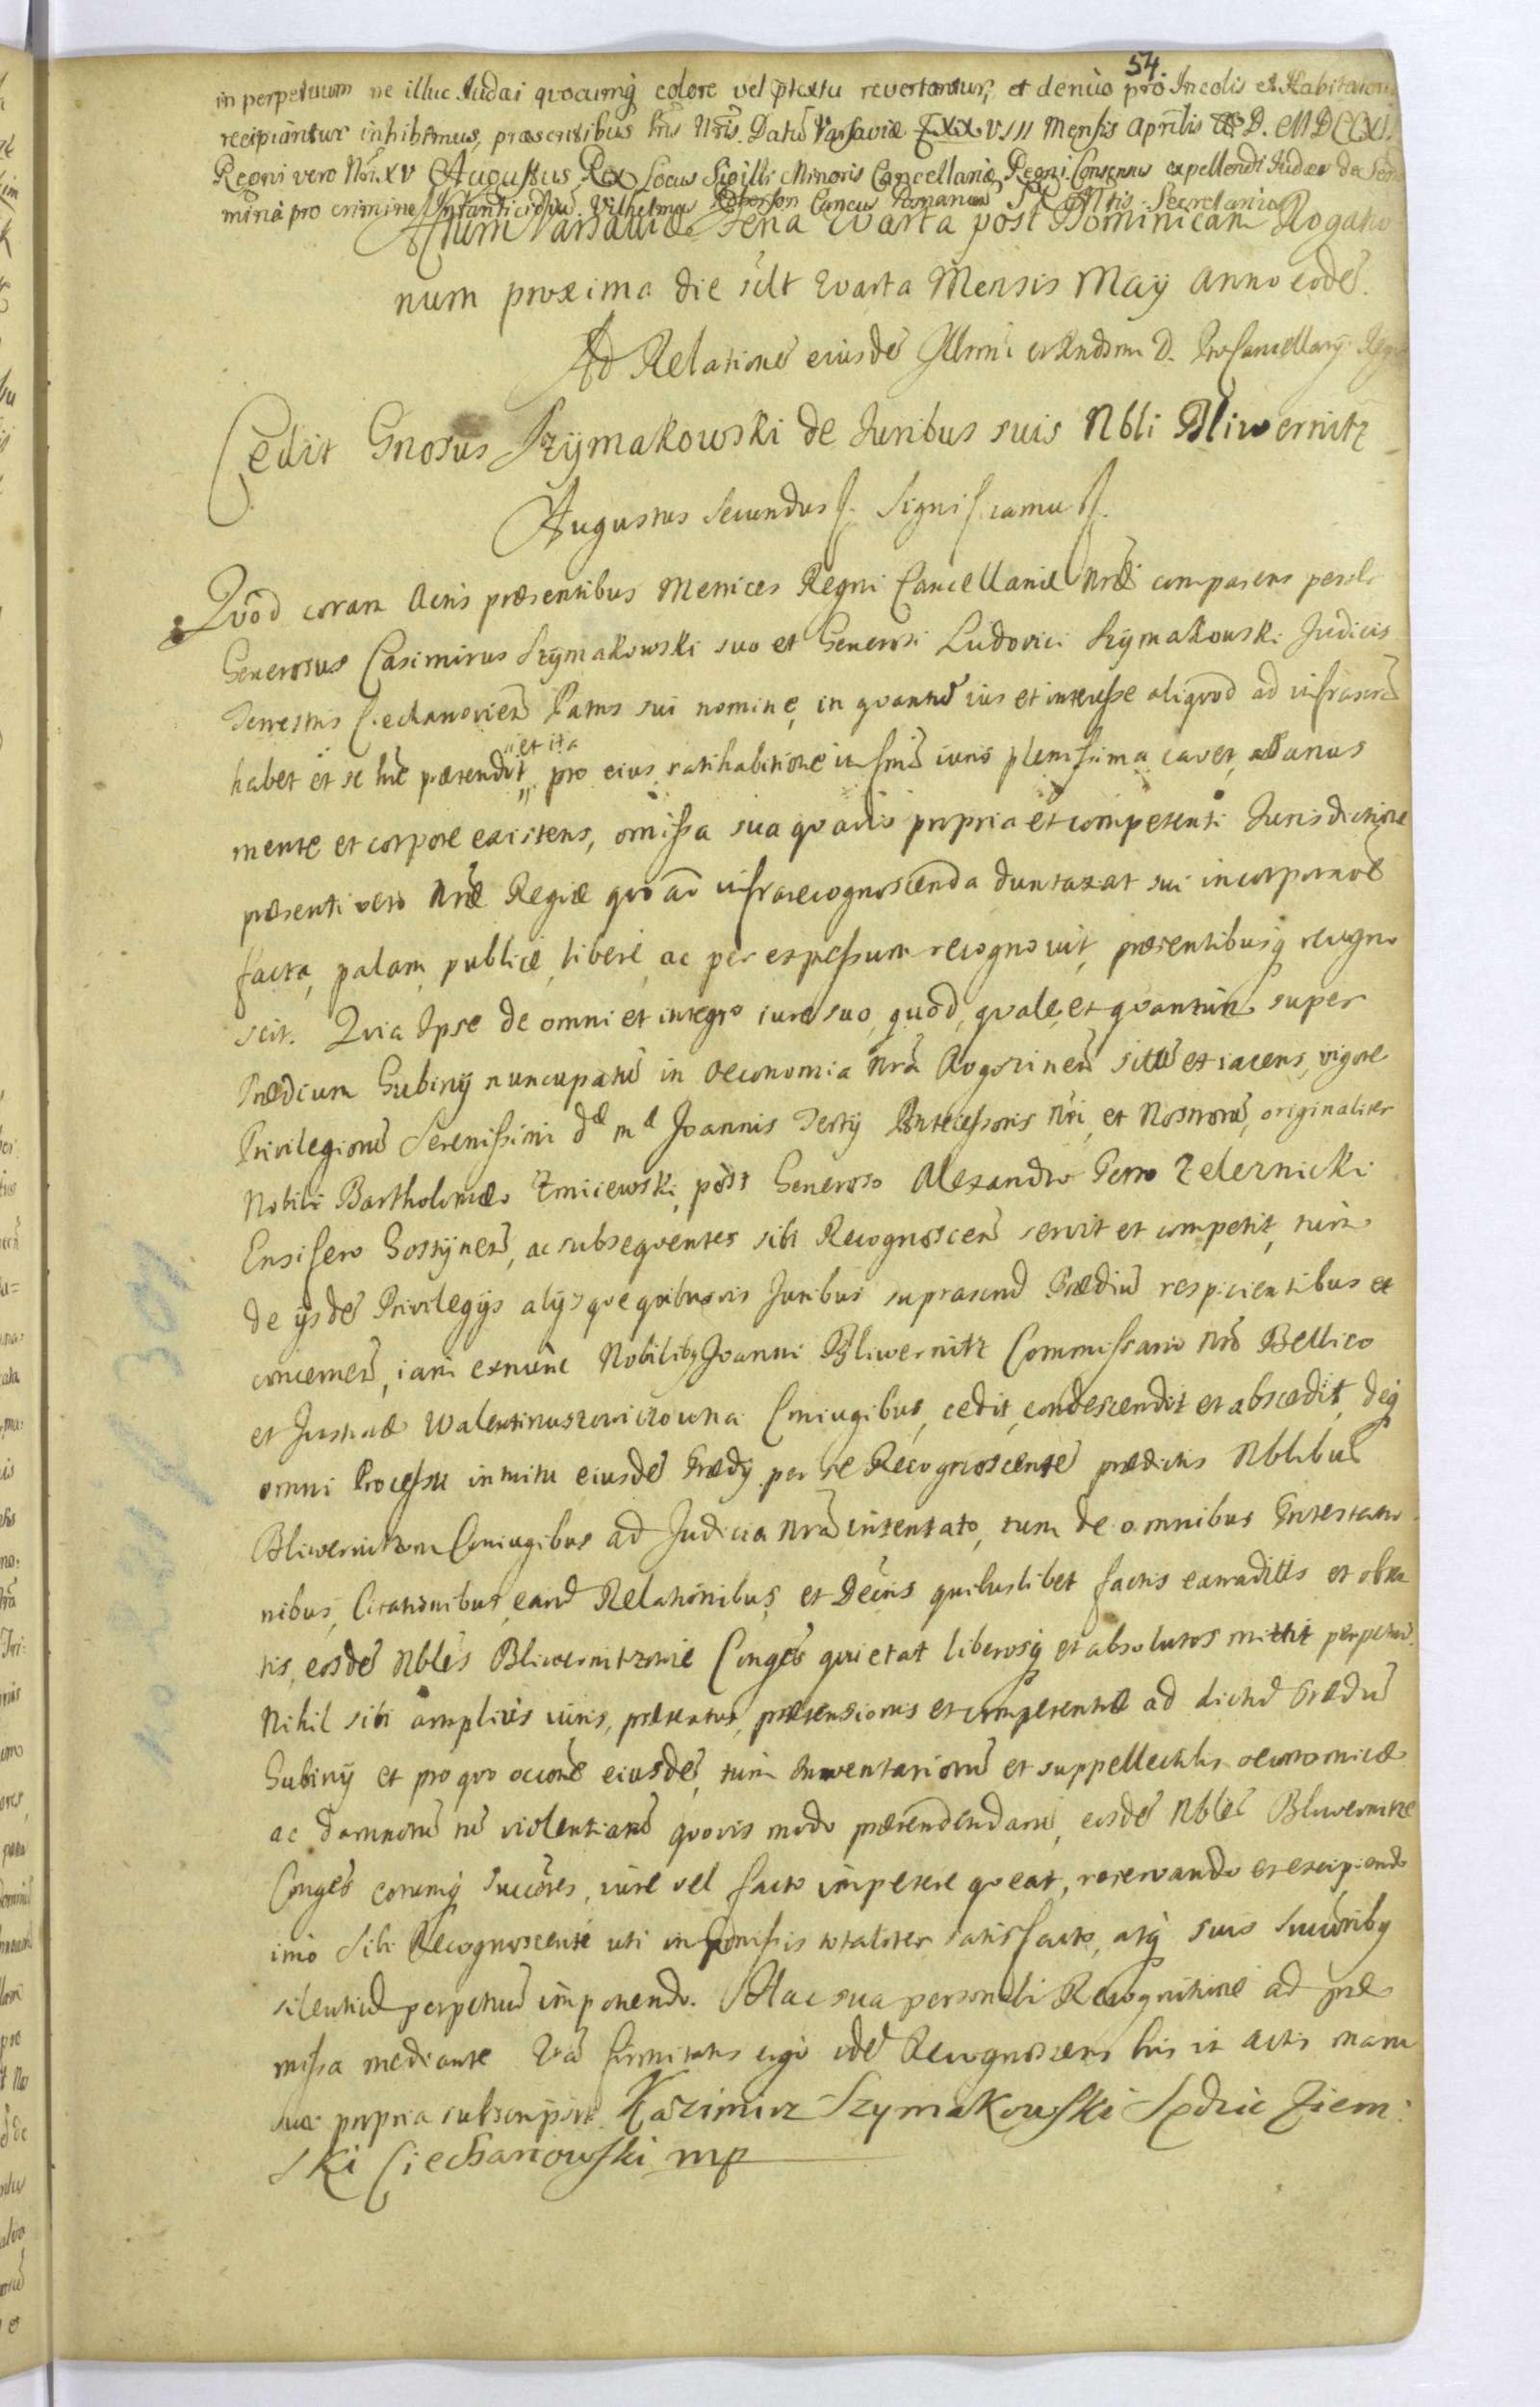 54.
in perpetuum ne illuc Judæi quocumq colore vel ptextu revertantur, et denuo pro Incolis et Habitatori
recipiantur inhibemus, præsentibus Nris. Datu Varsaviæ XXVIII Mensis Aprilis A D. MDCCXI.
Regni vero Nri XV Augustus Rex Locus Sigilli Minoris Cancellariæ Regni. Consensus expellendi Judæos de
miria pro crimine Infanticidiju. Vilhelmus Roberson Cancus Pomeranus S R Mtis Secretarius
Actum Varsaviæ Feria Quarta post Dominicam Rogatio
num proxima die silt Quarta Mensis Maÿ Anno eode.
Ad Relatione eiusde Illrmi et Rndssmi D. ProCancellarÿ Regni
Cedit Gnosus Szÿmakowski de Juribus suis Nbli Bliwernitz
Augustus Secundus S. Significamus S.
Quod coram Actis præsentibus Metrices Regni Cancellariæ Nræ comparens person
Generosus Casimirus Szÿmakowski suo et Generosi Ludovici Szÿmakowski Judicis
Terrestris Ciechanovien Patris sui nomine, in quantu ius et interesse aliquod ad infrascra
habet et se hre prætendit, et ita pro eius ratihabitione in forma iuris plenissima cavet, sanus
mente et corpore existens, omissa sua quavis propria et competenti Jurisdictione
præsenti vero Nræ Regiæ quo ad infrarecognoscenda duntaxat sui incorporaoe
facta, palam, publicè, liberè, ac per expressum recognovit, præsentibusq recogno
scit. Quia Ipse de omni et integro iure suo, quod, quale, et quantum super
Prædium Gubinÿ nuncupatu in Oeconomia Nra Rogozinen situ et iacens, vigore
Privilegioru Serenissimi Joannis Tertÿ Antecessoris Nri, et Nostroru, originaliter
Nobili Bartholomæo Zmiiewski, post Generoso Alexandro Petro Zelernicki
Ensifero Gostÿnen, ac subsequenter sibi Recognoscen servit et competit, tum
de ÿsde Privilegÿs alÿsque quibusvis Juribus suprascrip Prædiu respicientibus et
concernen, iam exnunc Nobilibq Joanni Bliwernitz Commissario Nro Bellico
et Justinæ Walentinuszowiczowna Coniugibus, cedit, condescendit et abscedit, deq
omni Processu intuitu eiusde Prædÿ per se Recognoscente prædictis Nblibus
Bliwernitzom Coniugibus ad Judicia Nra intentato, tum de omnibus Protestatio
nibus, Citationibus, eand Relationibus, et Decris quibuslibet factis extraditis et obten
tis, eosde Nbles Bliwernitzowie Conges quietat liberosq et absolutos mittit perpetuo.
Nihil sibi amplius iuris, prætextus, prætensionis et competentiæ ad dictu Prædiu
Gubinÿ et pro quo occone eiusde, tum Inventarioru et suppellectilis oeconomicæ
ac damnoru et violentiaru quovis modo prætendendaru, eosde Nbles Bliwernitze
Conges eorumq succores, iure vel facto impetere queat, reservando et excipiendo
imò sibi Recognoscenti uti in præmissis totaliter satisfacto, atq suis Succoribq
silentiu perpetuu imponendo. Hac sua personali Recognitione ad præ
missa mediante. Qua firmitatis ergo ide Recognoscens his in Actis manu
sua propria subscripsit. Kazimierz Szymakowski Sędzic Ziem:
Ski Ciechanowski mp